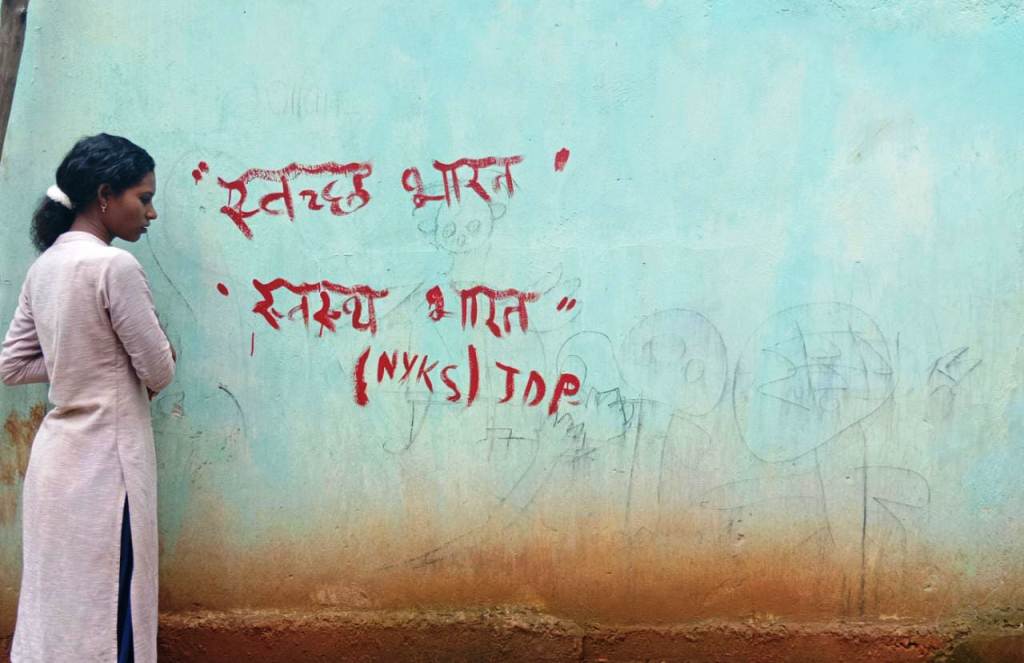 "स्वच्छ भारत"
"स्वस्थ भारत"
(NYKS) JDP